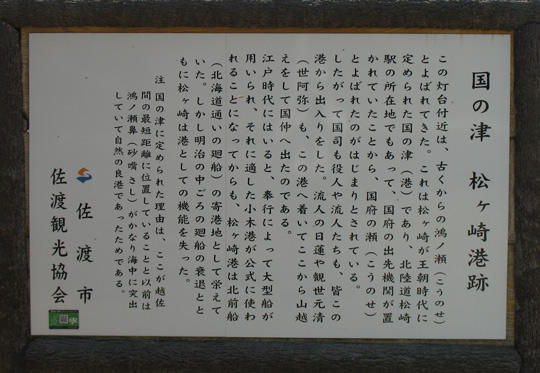 国の津 松ヶ崎港跡
この灯台付近は、古くからの鴻ノ瀬(こうのせ)
とよばれてきた。これは松ヶ崎が王朝時代に
定められた国の津(港)であり、北陸道松崎
駅の所在地でもあって、国府の出先機関が置
かれていたことから、国府の瀬(こうのせ)
とよばれたのがはじまりとされている。
したがって国司も役人や流人たちも、皆この
港から出入りをした。流人の日蓮や観世元清
(世阿弥)も、この港へ着いてここから山越
えをして国仲へ出たのである。
江戸時代にはいると、奉行によって大型船が
用いられ、それに適した小木港が公式に使わ
れることになってからも、松ヶ崎港は北前船
(北海道通いの廻船)の寄港地として栄えて
いた。しかし明治の中ごろの廻船の衰退とと
もに松ヶ崎は港としての機能を失った。
注 国の津に定められた理由は、ここが越佐
間の最短距離に位置していることと以前は
鴻ノ瀬鼻(砂嘴さし)がかなり海中に突出
していて自然の良港であったためである。
佐渡市
佐渡観光協会